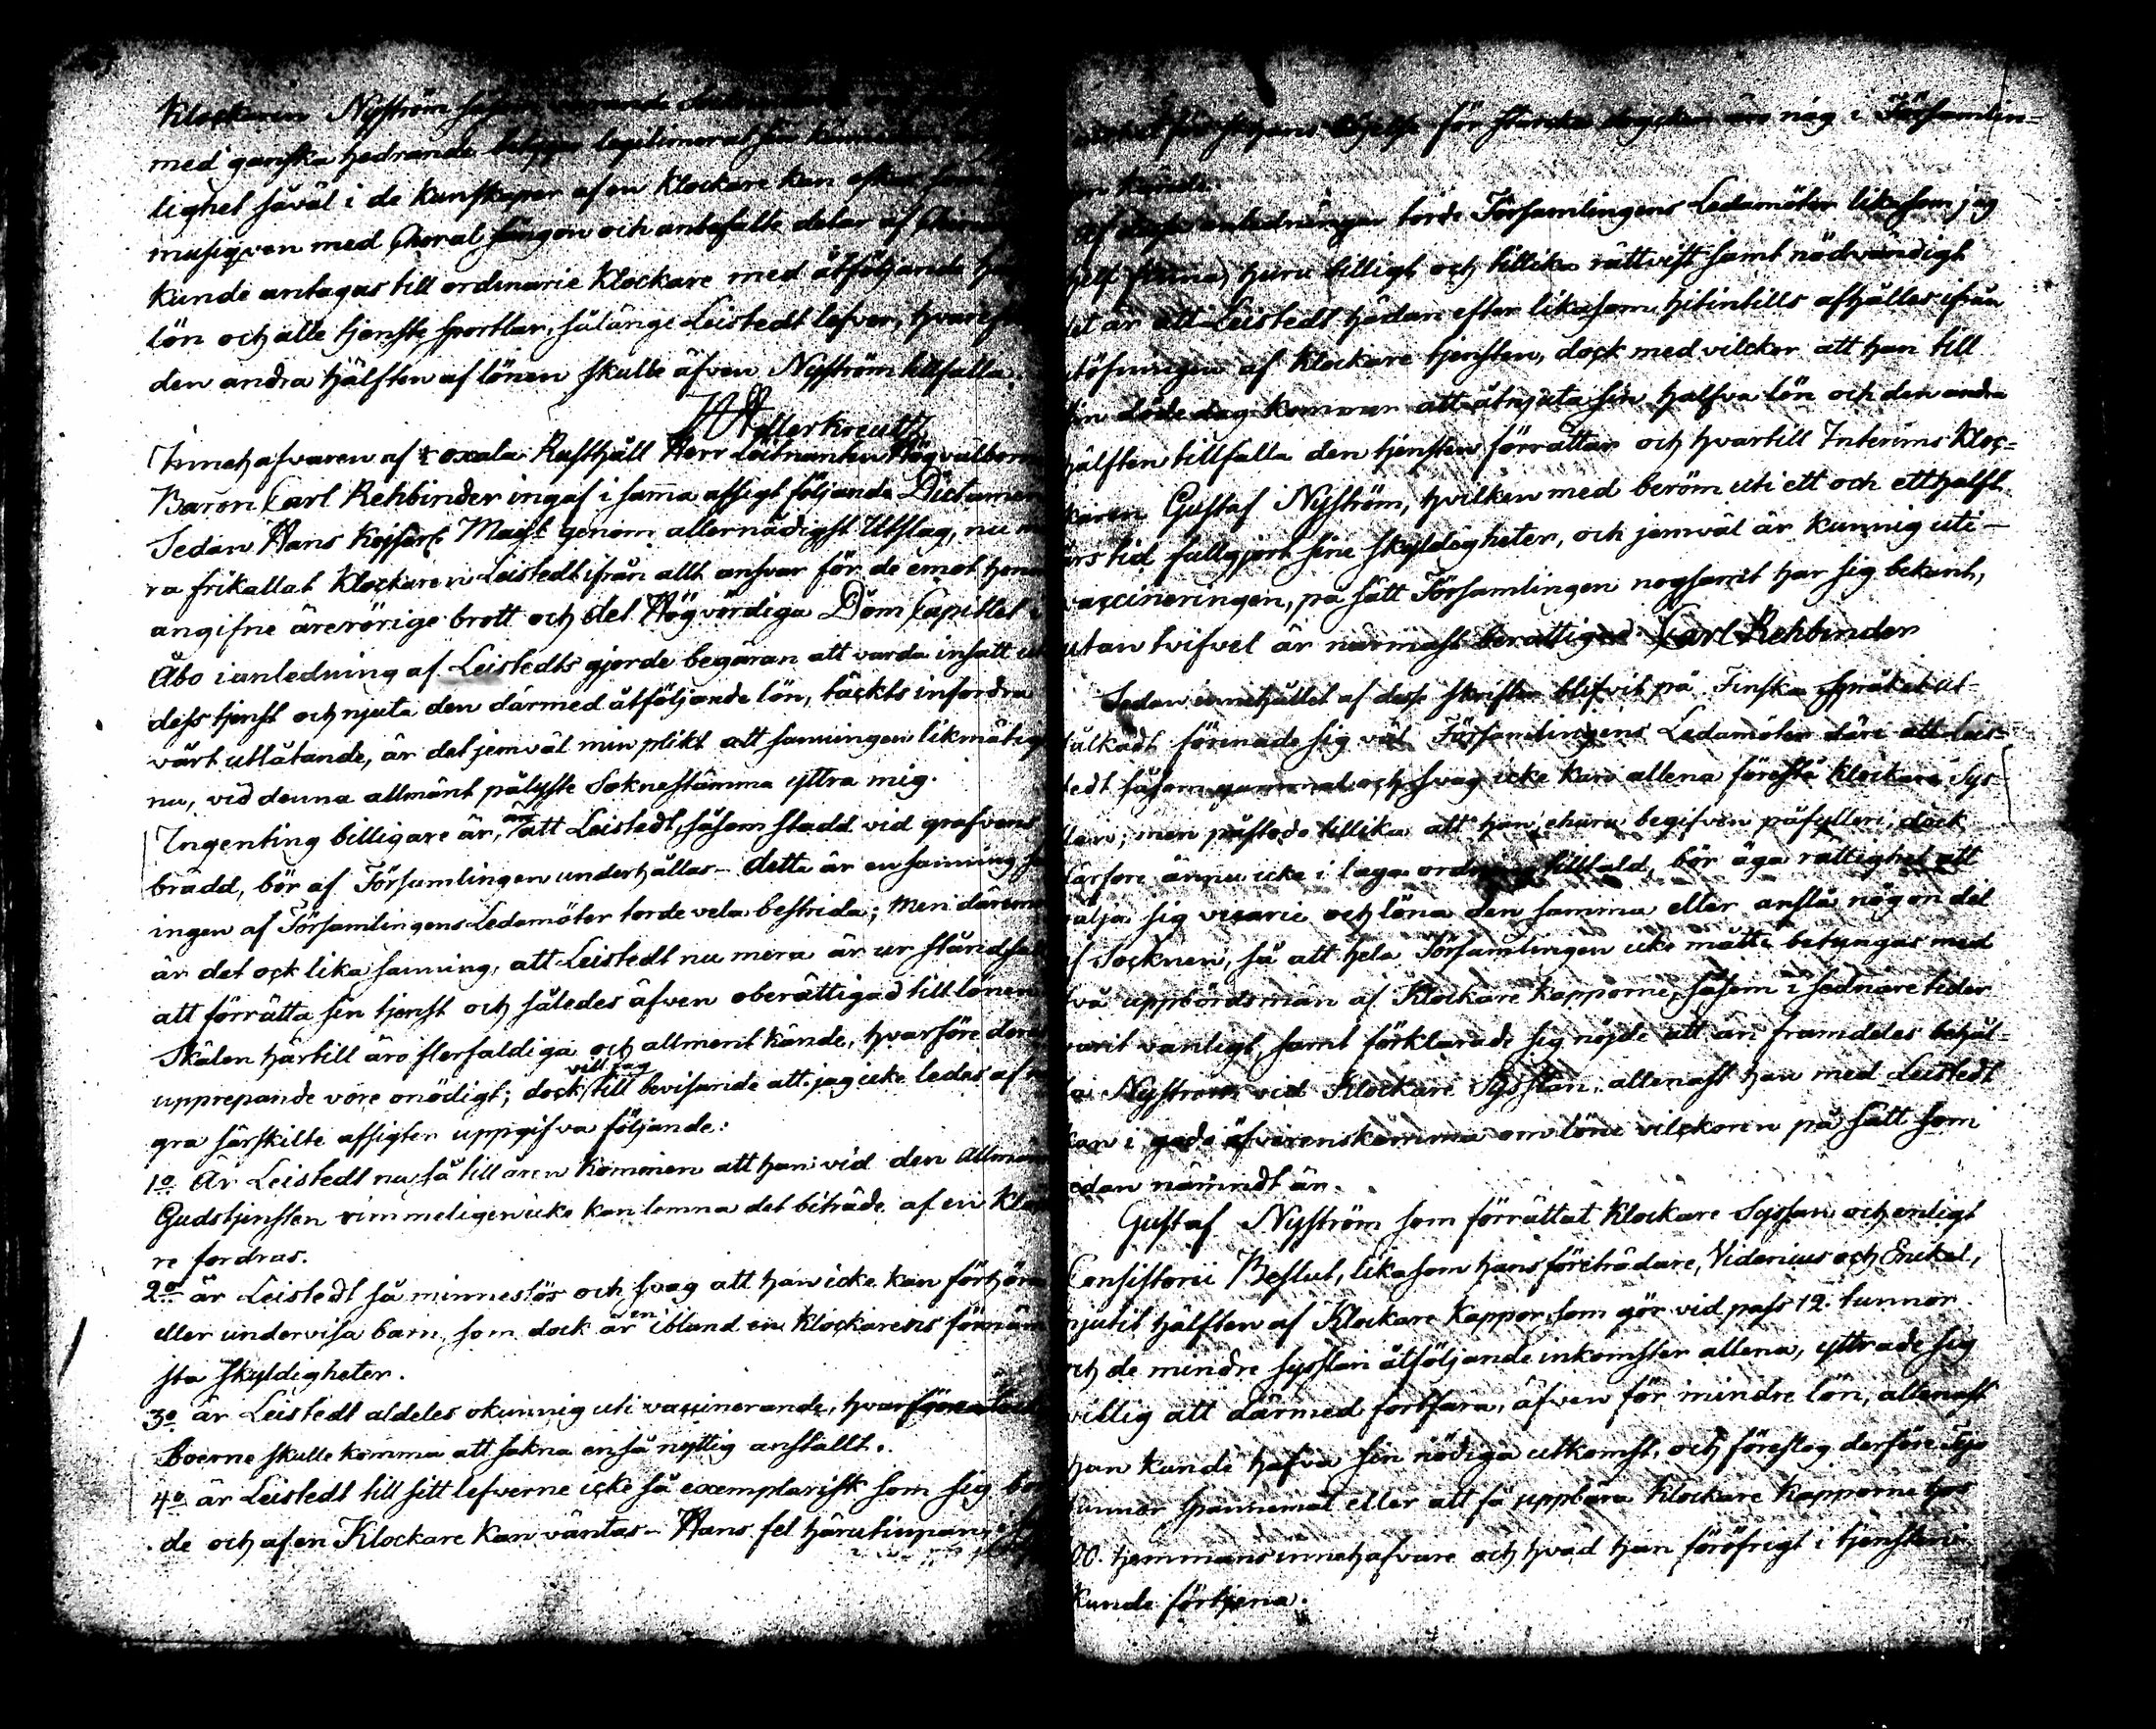 Klockaren Nyström såsom
med ganska hedrande betyger legitimerat sin
lighet såväl i de kunskaper af en Klockare kan
musiqven med Choral sången och anbefalte delar af
kunde antagas till ordinarie Klockare med åtföljande
lön och alle tjenste sportlar, sålänge Leistedt lefver, hvarefter
den andra hälften af lönen skulle äfven Nyström tillfalla.
Adlerkreutz
Innehafvaren af oxala Rusthåll Herr Löitnanten Högvälborne
Baron Carl Rehbinder ingaf i sama afsigt följande Dictamen
Sedan Hans Kejserl. Majst genom allernådigst Utslag, nu
ra frikallat Klockaren Leistedt ifrån allt ansvar för de emot hono
angifne ärerörige brott och det Högvördiga Dom Capitlet i
Åbo i anledning af Leistedts gjorde begäran att varda insatt
dess tjenst och njuta den därmed åtföljande lön, täckts infordra
vårt utlåtande, är det jemväl min plikt att sanningen likmätigt
nu, vid denna allmänt pålyste Soknestämma yttra mig.
Ingenting billigare är, än att Leistedt, såsom stadd vid grafvens
brädd, bör af Församlingen underhållas – detta är en sanning
ingen af Församlingens Ledamöter torde vela bestrida; men däremot
är det ock lika sanning, att Leistedt nu mera är ur stånd
att förrätta sin tjenst och således äfven oberättigad till lönen
Skälen härtill äro flerfaldiga och allment kände, hvarföre deras
upprepande vore onödigt; dock vill jag till bevisande att jag icke ledes af
gra särskilte afsigter uppgifva följande:
1o Är Leistedt nu så till åren kommen att han vid den Allmänna
Gudstjensten rimmeligen icke kan lemna det biträde af en Klocka
re fordras.
2o är Leistedt så minneslös och svag att han icke kan förhöra
eller undervisa barn, som dock är en ibland en Klockarens förnäm
sta skyldigheter.
3o är Leistedt aldeles okunnig uti vaccinerande, hvarföre
boerne skulle komma att sakna en så nyttig anstallt.
4o är Leistedt till sitt lefverne icke så exemplarisk som sig bor
de och af en Klockare kan väntas – Hans fel härutinnan,
för starcka drycker äro nog i Församlin-
gen kände.
Af desse anledningar torde Församlingens Ledamöter likasom jag
sjelf finna, huru billigt och tillika rättvist samt nödvändigt
det är att Leistedt hädan efter likasom hitintills afhålles ifrån
utöfningen af Klockare tjensten, dock med vilckor att han till
sin döde dag kommer att åtnjuta sin halfva lön och den andra
hälften tillfalla den tjensten förrättar och hvartill Interims Kloc-
karen Gustaf Nyström, hvilken med beröm uti ett och ett halft
års tid fullgjort sine skyldigheter, och jemväl är kunnig uti
vaccineringen, på sätt Församlingen nogsamt har sig bekant,
utan tvifvel är närmast berättigad. Carl Rehbinder
Sedan innehållet af desse skrifter blifvit på Finska språket ut-
tålkadt förenade sig väl Församlingens Ledamöter däri att Leis-
tedt såsom gammal och svag icke kan allena förestå Klockare Sys-
lan; men påstodo tillika att han, ehuru begifven på fylleri, dock
därfore ännu icke i laga ordning tilltald, bör äga rättighet att
välja sig vicarie och löna den samma eller anslå någon del
af Socknen, så att hela Församlingen icke måtte betungas med
två uppbördsmän af Klockare Kapporne, såsom i sednare tider
varit vanligt, samt förklarade sig nöjde att än framdeles behål-
la Nyström vid Klockare Sysslan, allenast han med Leistedt
kan i godo öfverenskomma om löne vilckoren på sätt som
redan nämndt är.
Gustaf Nyström som förrättat Klockare Syslan och enligt
Consistorii Beslut, likasom hans företrädare, Videnius och Enckel,
njutit hälften af Klockare Kappor, som gör vid pass 12. tunnor
och de mindre sysslan åtföljande inkomster allena, yttrade sig
villig att därmed fortfara, äfven för mindre lön, allenast
han kunde hafva sin nödiga utkomst, och föreslog derföre Tjo
tunnor Spannemål eller att få uppbära Klockare Kapporne hos
00. hemmans innehafvare och hvad han föröfrigt i tjensten
kunde förtjena.